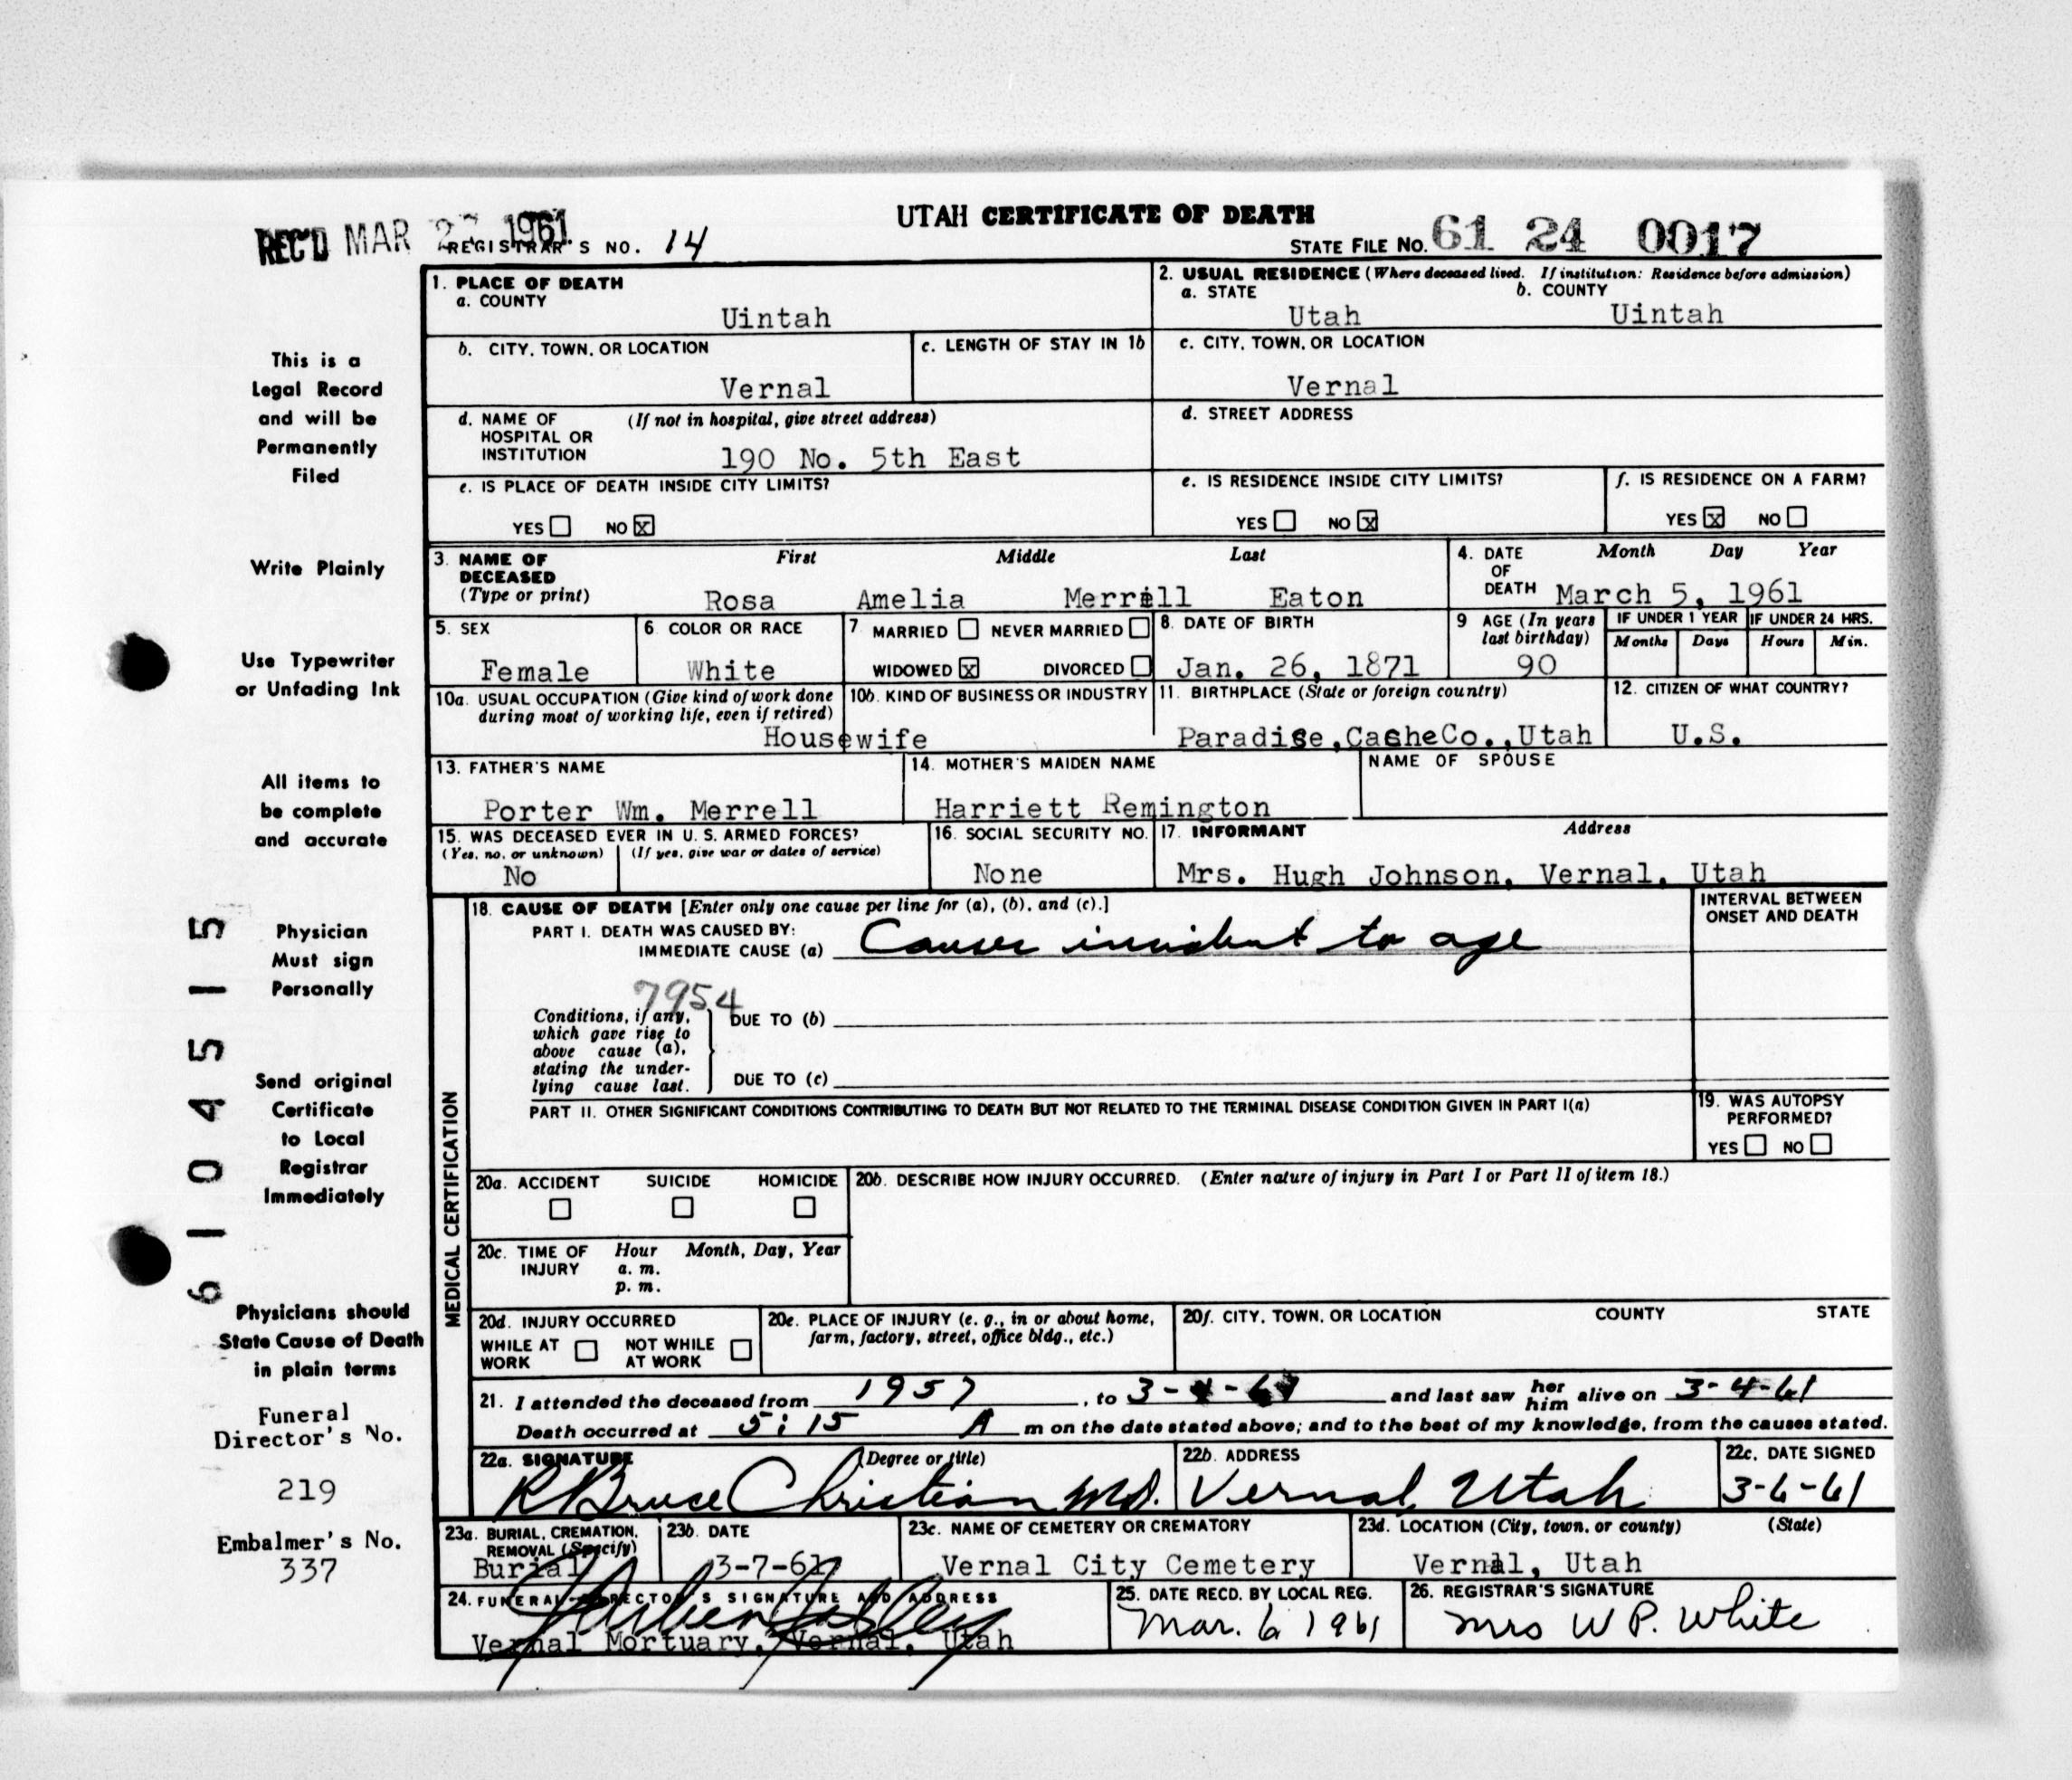 UTAH CERTIFICATE OF DEATH
REC'D MAR 27 1961 REGISTRAR'S NO. 14
STATE FILE NO. 61 24 0017
1. PLACE OF DEATH
a. COUNTY
Uintah
2. USUAL RESIDENCE (Where deceased lived. If institution: Residence before admission)
a. STATE b. COUNTY
Utah Uintah
b. CITY, TOWN, OR LOCATION
Vernal
c. LENGTH OF STAY IN 1b
c. CITY, TOWN, OR LOCATION
Vernal
d. NAME OF (If not in hospital, give street address)
HOSPITAL OR
INSTITUTION 190 No. 5th East
d. STREET ADDRESS
e. IS PLACE OF DEATH INSIDE CITY LIMITS?
YES NO X
e. IS RESIDENCE INSIDE CITY LIMITS?
YES NO X
f. IS RESIDENCE ON A FARM?
YES X NO
3. NAME OF First Middle Last
DECEASED
(Type or print) Rosa Amelia Merrill Eaton
4. DATE Month Day Year
OF
DEATH March 5, 1961
5. SEX
Female
6. COLOR OR RACE
White
7 MARRIED NEVER MARRIED
WIDOWED X DIVORCED
8. DATE OF BIRTH
Jan. 26, 1871
9 AGE (In years
last birthday)
90
IF UNDER 1 YEAR IF UNDER 24 HRS.
Months Days Hours Min.
10a. USUAL OCCUPATION (Give kind of work done
during most of working life, even if retired)
Housewife
10b. KIND OF BUSINESS OR INDUSTRY
11. BIRTHPLACE (State or foreign country)
Paradise,CacheCo.,Utah
12. CITIZEN OF WHAT COUNTRY?
U.S.
13. FATHER'S NAME
Porter Wm. Merrell
14. MOTHER'S MAIDEN NAME
Harriett Remington
NAME OF SPOUSE
15. WAS DECEASED EVER IN U.S. ARMED FORCES?
(Yes, no, or unknown) (If yes, give war or dates of service)
No
16. SOCIAL SECURITY NO.
None
17. INFORMANT Address
Mrs. Hugh Johnson, Vernal, Utah
MEDICAL CERTIFICATION
18. CAUSE OF DEATH [Enter only one cause per line for (a), (b), and (c).]
PART I. DEATH WAS CAUSED BY:
IMMEDIATE CAUSE (a) Causes incident to age
INTERVAL BETWEEN
ONSET AND DEATH
7954
Conditions, if any,
which gave rise to
above cause (a),
stating the under-
lying cause last.
DUE TO (b)
DUE TO (c)
PART II. OTHER SIGNIFICANT CONDITIONS CONTRIBUTING TO DEATH BUT NOT RELATED TO THE TERMINAL DISEASE CONDITION GIVEN IN PART I(a)
19. WAS AUTOPSY
PERFORMED?
YES NO
20a. ACCIDENT SUICIDE HOMICIDE
20b. DESCRIBE HOW INJURY OCCURRED. (Enter nature of injury in Part I or Part II of item 18.)
20c. TIME OF Hour Month, Day, Year
INJURY a. m.
p. m.
20d. INJURY OCCURRED
WHILE AT NOT WHILE
WORK AT WORK
20e. PLACE OF INJURY (e. g., in or about home,
farm, factory, street, office bldg., etc.)
20f. CITY, TOWN, OR LOCATION COUNTY STATE
21. I attended the deceased from 1957, to 3-4-61 and last saw her him alive on 3-4-61
Death occurred at 5:15 A m on the date stated above; and to the best of my knowledge, from the causes stated.
22a. SIGNATURE (Degree or title)
R Bruce Christian MD.
22b. ADDRESS
Vernal, Utah
22c. DATE SIGNED
3-6-61
23a. BURIAL, CREMATION,
REMOVAL (Specify)
Burial
23b. DATE
3-7-61
23c. NAME OF CEMETERY OR CREMATORY
Vernal City Cemetery
23d. LOCATION (City, town, or county) (State)
Vernal, Utah
24. FUNERAL DIRECTOR'S SIGNATURE AND ADDRESS
Vernal Mortuary, Vernal, Utah
25. DATE RECD. BY LOCAL REG.
Mar. 6 1961
26. REGISTRAR'S SIGNATURE
Mrs W P. White
This is a
Legal Record
and will be
Permanently
Filed
Write Plainly
Use Typewriter
or Unfading Ink
All items to
be complete
and accurate
Physician
Must sign
Personally
Send original
Certificate
to Local
Registrar
Immediately
Physicians should
State Cause of Death
in plain terms
Funeral
Director's No.
219
Embalmer's No.
337
61045155